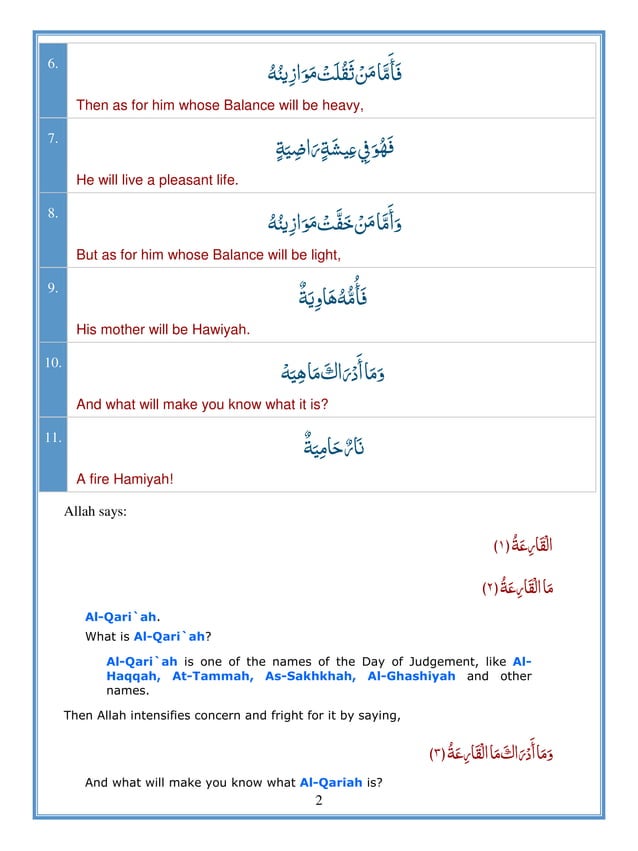 6.
فَأَمَّا مَنْ ثَقُلَتْ مَوَازِينُهُ
Then as for him whose Balance will be heavy,
7.
فَهُوَ فِي عِيشَةٍ رَاضِيَةٍ
He will live a pleasant life.
8.
وَأَمَّا مَنْ خَفَّتْ مَوَازِينُهُ
But as for him whose Balance will be light,
9.
فَأُمُّهُ هَاوِيَةٌ
His mother will be Hawiyah.
10.
وَمَا أَدْرَاكَ مَا هِيَهْ
And what will make you know what it is?
11.
نَارٌ حَامِيَةٌ
A fire Hamiyah!
Allah says:
الْقَارِعَةُ (١)
مَا الْقَارِعَةُ (٢)
Al-Qari`ah.
What is Al-Qari`ah?
Al-Qari`ah is one of the names of the Day of Judgement, like Al-
Haqqah, At-Tammah, As-Sakhkhah, Al-Ghashiyah and other
names.
Then Allah intensifies concern and fright for it by saying,
وَمَا أَدْرَاكَ مَا الْقَارِعَةُ (٣)
And what will make you know what Al-Qariah is?
2